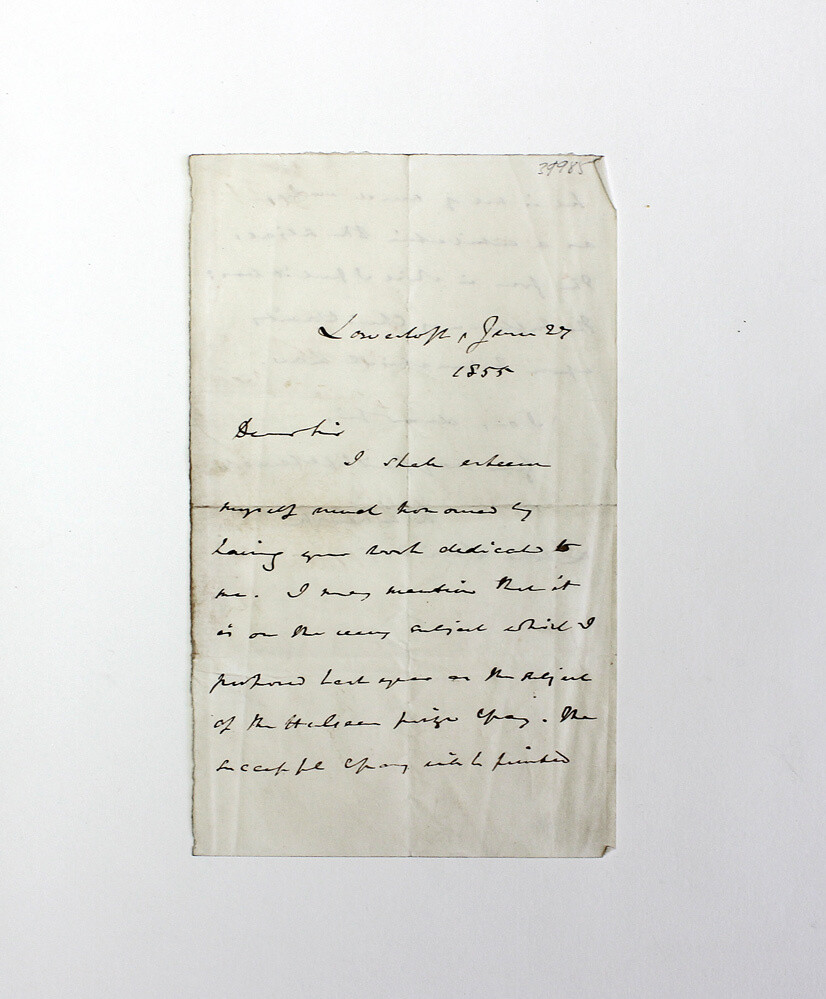 39985
Lowestoft, June 27
1855
Dear Sir
I shall esteem
myself much honoured by
having your work dedicated to
me. I may mention that it
is on the very subject which I
proposed last year as the subject
of the Hulsean prize Essay. The
successful Essay will be printed